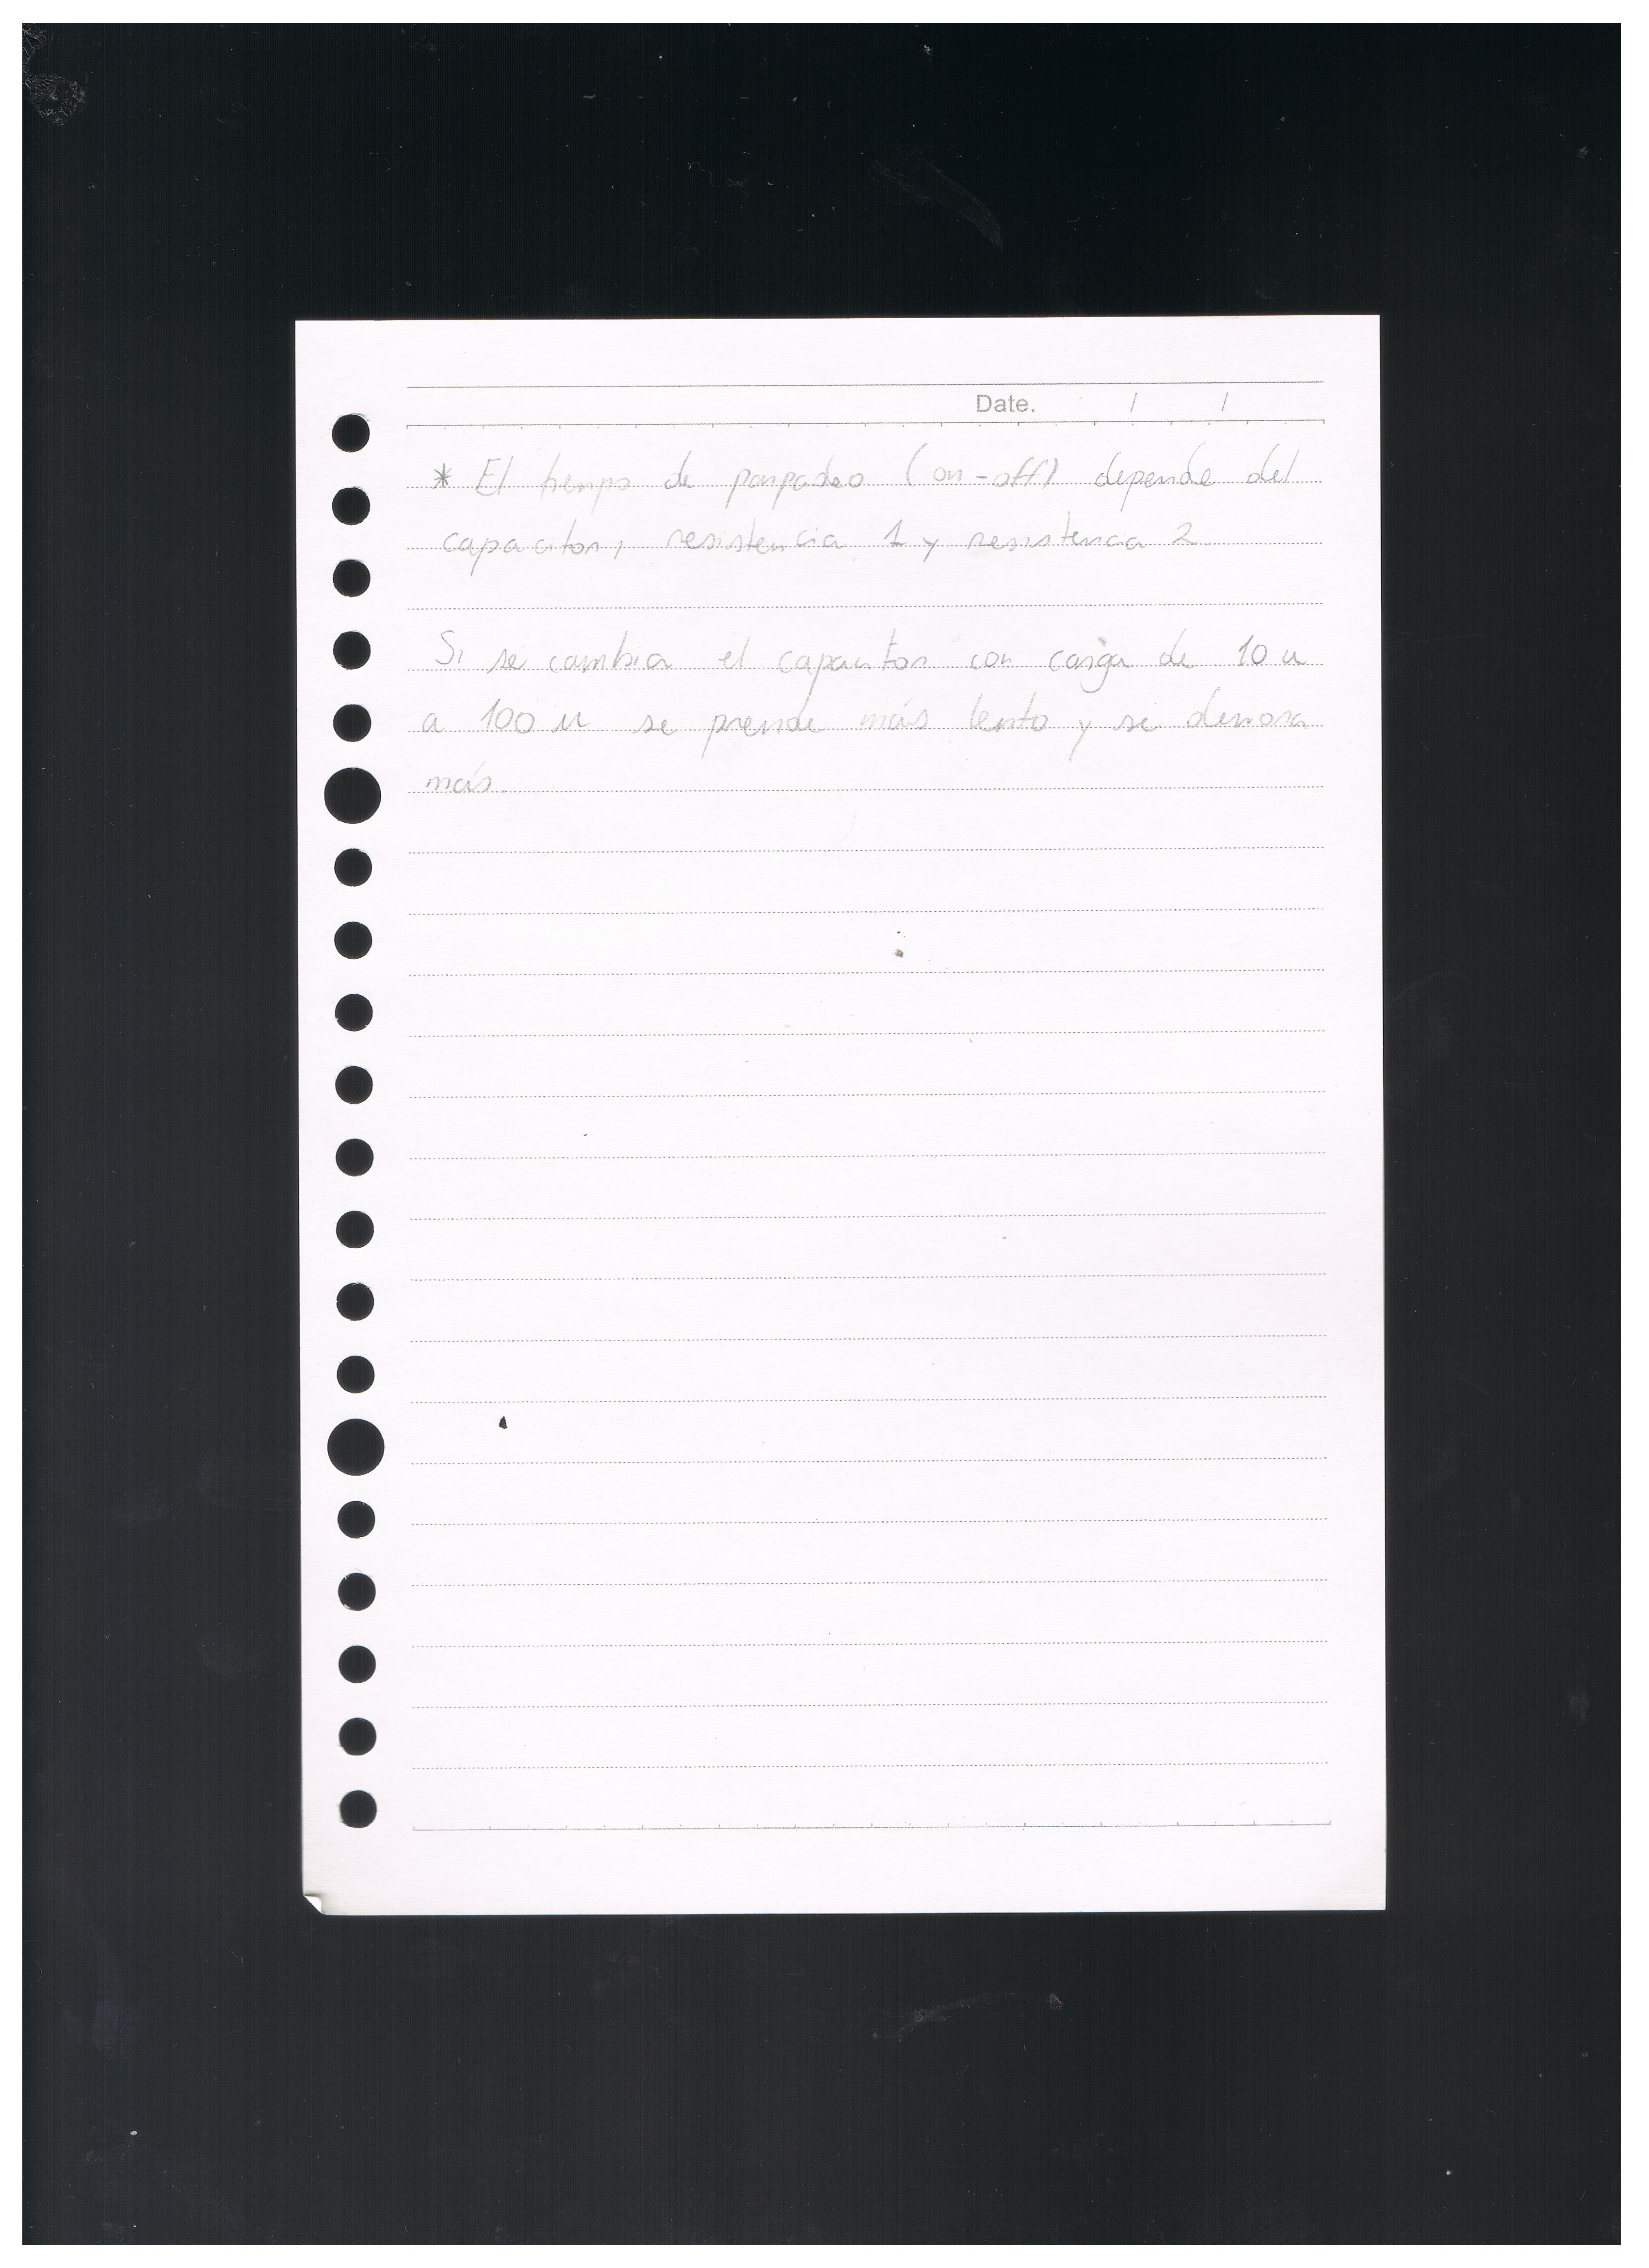 Date. / /
* El tiempo de parpadeo (on-off) depende del
capacitor, resistencia 1 y resistencia 2
Si se cambia el capacitor con carga de 10 u
a 100 u se prende más lento y se demora
más.